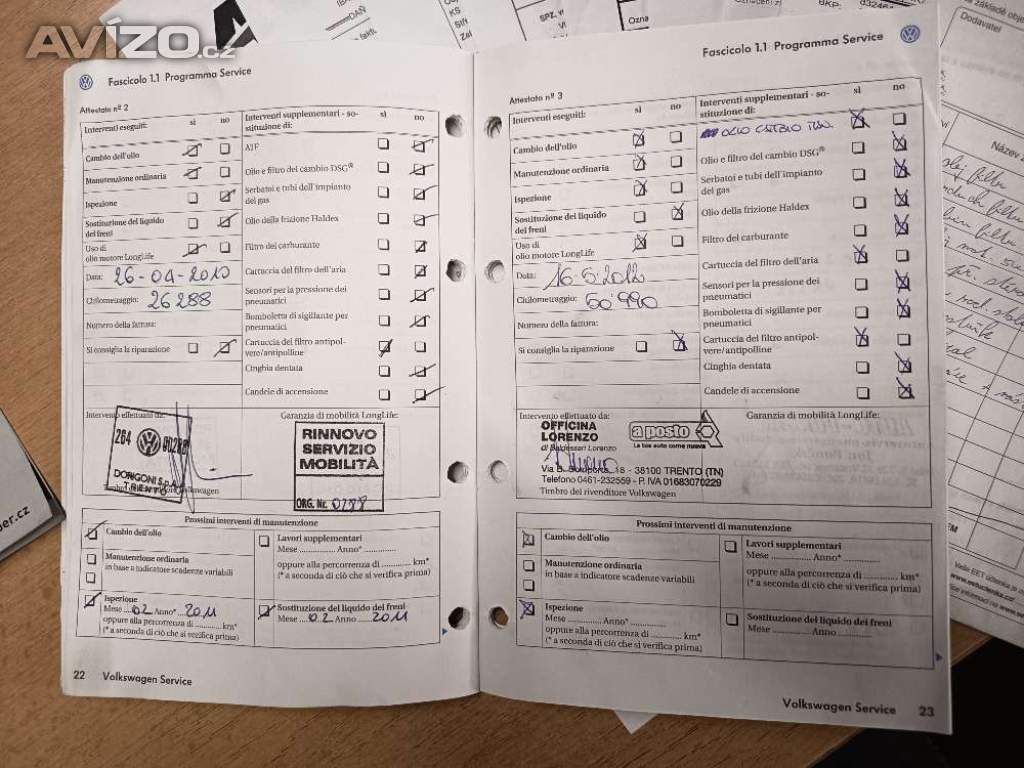 AVÍZO.cz
Fascicolo 1.1 Programma Service
Attestato nº 2
Interventi eseguiti: sì no
Cambio dell'olio
Manutenzione ordinaria
Ispezione
Sostituzione del liquido
dei freni
Uso di
olio motore LongLife
Data: 26-04-2010
Chilometraggio: 26288
Numero della fattura:
Si consiglia la riparazione
Interventi supplementari - so-
stituzione di: sì no
ATF
Olio e filtro del cambio DSG®
Serbatoi e tubi dell'impianto
del gas
Olio della frizione Haldex
Filtro del carburante
Cartuccia del filtro dell'aria
Sensori per la pressione dei
pneumatici
Bomboletta di sigillante per
pneumatici
Cartuccia del filtro antipol-
vere/antipolline
Cinghia dentata
Candele di accensione
Intervento effettuato da:
264
DORIGONI S.p.A.
TRENTO
Volkswagen
Garanzia di mobilità LongLife:
RINNOVO
SERVIZIO
MOBILITÀ
ORG. Nr.
Prossimi interventi di manutenzione
Cambio dell'olio
Manutenzione ordinaria
in base a indicatore scadenze variabili
Ispezione
Mese 02 Anno* 2011
oppure alla percorrenza di ............ km*
(* a seconda di ciò che si verifica prima)
Lavori supplementari
Mese ............ Anno* ............
oppure alla percorrenza di ............ km*
(* a seconda di ciò che si verifica prima)
Sostituzione del liquido dei freni
Mese 02 Anno 2011
22 Volkswagen Service
Fascicolo 1.1 Programma Service
Attestato nº 3
Interventi eseguiti: sì no
Cambio dell'olio
Manutenzione ordinaria
Ispezione
Sostituzione del liquido
dei freni
Uso di
olio motore LongLife
Data: 16-5-2012
Chilometraggio: 50'990
Numero della fattura:
Si consiglia la riparazione
Interventi supplementari - so-
stituzione di: sì no
OLIO
Olio e filtro del cambio DSG®
Serbatoi e tubi dell'impianto
del gas
Olio della frizione Haldex
Filtro del carburante
Cartuccia del filtro dell'aria
Sensori per la pressione dei
pneumatici
Bomboletta di sigillante per
pneumatici
Cartuccia del filtro antipol-
vere/antipolline
Cinghia dentata
Candele di accensione
Intervento effettuato da:
OFFICINA
LORENZO
di Baldessari Lorenzo
a posto
La tua auto come nuova
18 - 38100 TRENTO (TN)
Telefono 0461-232559 - P. IVA 01683070229
Timbro del rivenditore Volkswagen
Garanzia di mobilità LongLife:
Prossimi interventi di manutenzione
Cambio dell'olio
Manutenzione ordinaria
in base a indicatore scadenze variabili
Ispezione
Mese ............ Anno* ............
oppure alla percorrenza di ............ km*
(* a seconda di ciò che si verifica prima)
Lavori supplementari
Mese ............ Anno* ............
oppure alla percorrenza di ............ km*
(* a seconda di ciò che si verifica prima)
Sostituzione del liquido dei freni
Mese ............ Anno ............
Volkswagen Service 23
Dodavatel
Ozna
KS